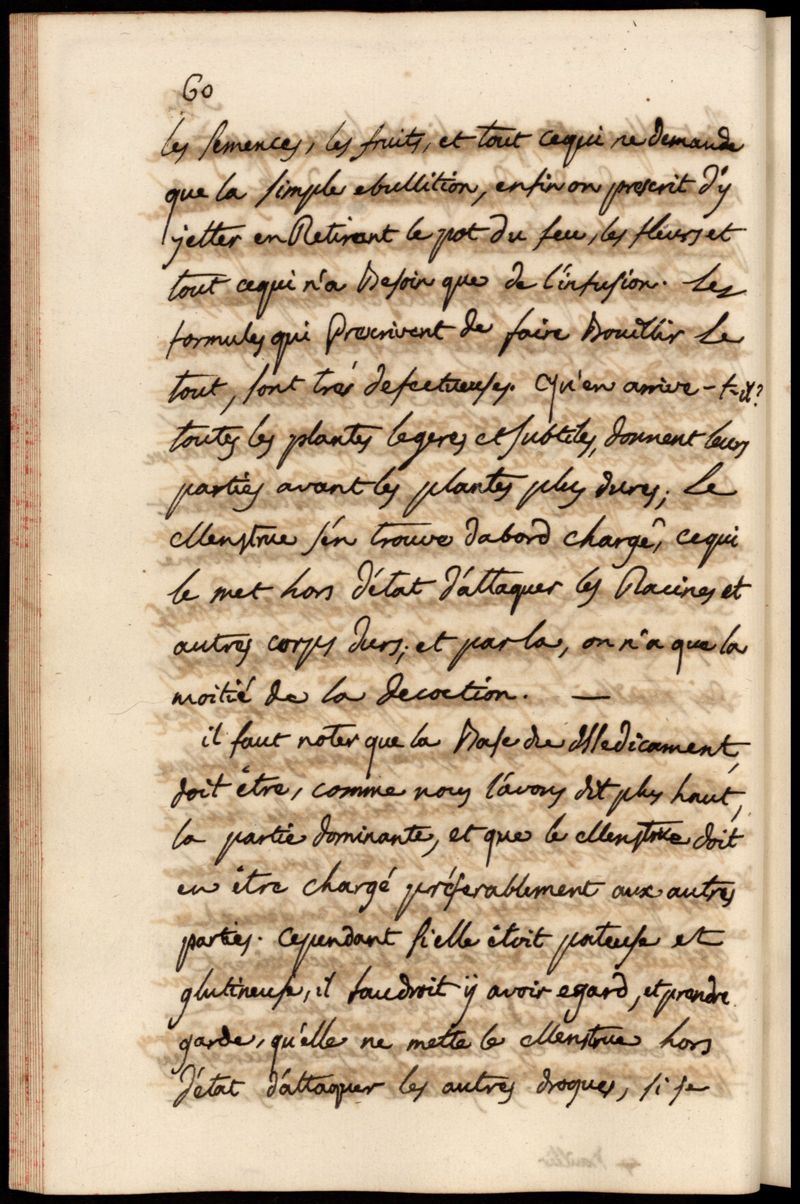 60
les semences, les fruits, et tout cequi ne demande
que la simple ebullition, enfin on prescrit d'y
jetter en Retirant le pot du feu, les fleurs et
tout cequi n'a Besoin que de l'infusion. Les
formules qui Prescrivent de faire Bouillir Le
tout, sont trés defectueuses. Qu'en arrive-t-il?
toutes les plantes legeres et subtiles, donnent leurs
parties avant les plantes plus dures; Le
Menstrue s'én trouve dabord chargé, cequi
le met hors d'état d'áttaquer les Racines et
autres corps durs; et par la, on n'a que la
moitié de la decoction. —
il faut noter que la Base du Medicament,
doit être, comme nous l'ávons dit plus haut,
la partie dominante, et que le Menstrue doit
en être chargé préferablement aux autres
parties. Cependant si elle êtoit pateuse et
glutineuse, il faudroit ÿ avoir egard, et prendre
garde, qu'elle ne mette le Menstrue hors
d'état d'áttaquer les autres drogues, si se